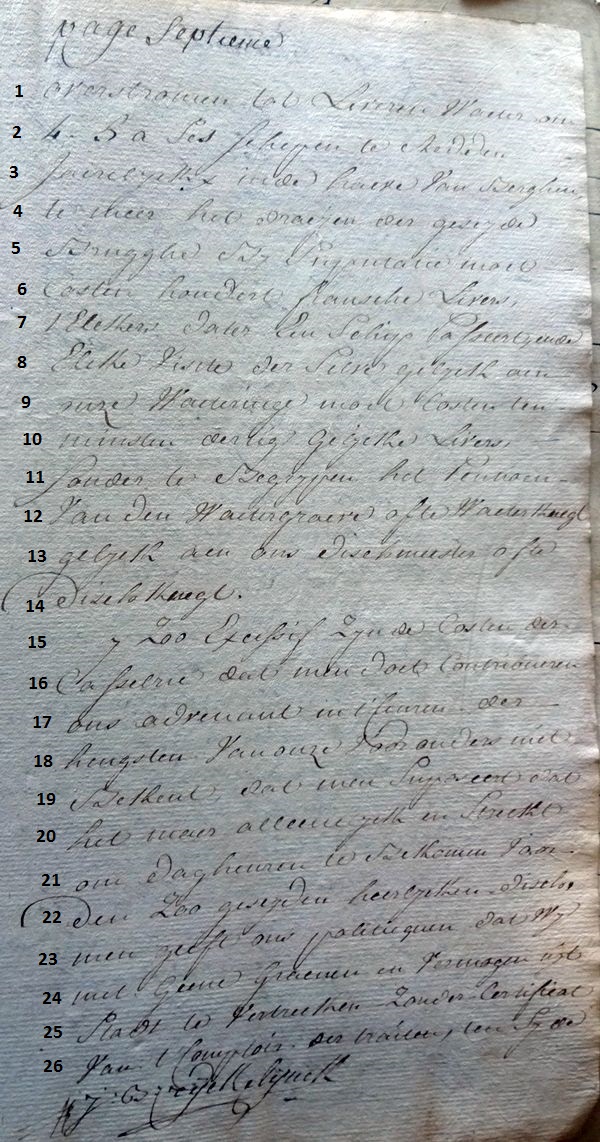 page Septieme
1 overstroomen tot Leveren Water om
2 4. 5 a Ses schepen te
3 Jaerelyckx inde haeve Van Berghen,
4 te meer het draeijen der geseyde
5 Brugghe By moet
6 Costen hondert fransche Livers,
7 t'Elckers dater Een Schip Passeert, ende
8 Elcke Visite der Selve gelyck aen
9 onze Wateringe moet Costen ten
10 minsten dertig Gelycke Livers,
11 sonder te Begrypen het
12 Van den Watergraeve ofte Waterknegt
13 gelyck aen ons dischmeester ofte
14 dischknegt.
15 Zoo Excessif Zyn de Costen der
16 Casselrie dat men doet Contribueren
17 ons advenant in t' heuren der
18 hengsten Van onze Voorouders niet
19 Bekent, dat men Supposeert dat
20 het maer alleenelyk en Streckt
21 om daghueren te Bekomen Voor
22 den Zoo geseyden heerlyken disch,
23 men geeft ons politiquen dat Wy
24 met Geene Graenen en Vermogen uyt
25 Stadt te Vertrecken Zonder Certificat
26 Van t' Comptoir der traiten, ten Zy de